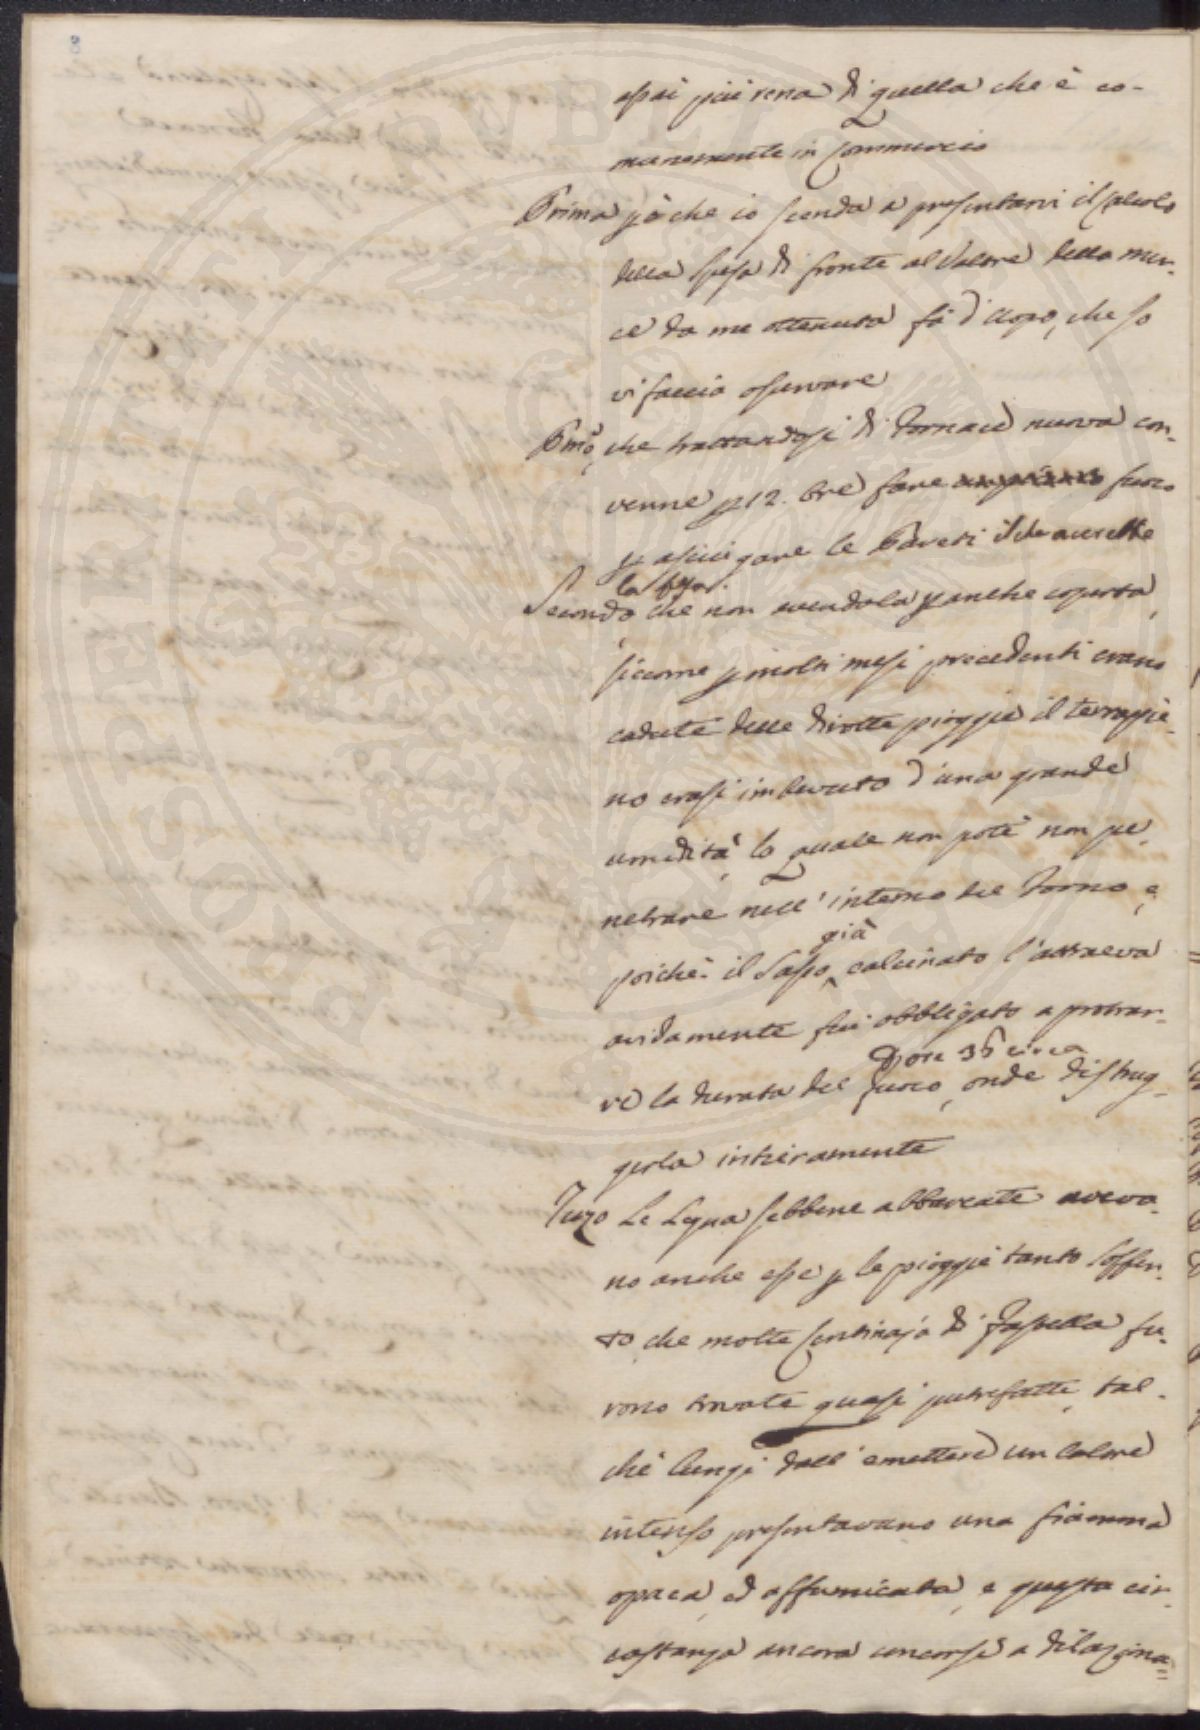 8
assai più resa di quella che è co-
munemente in Commercio
Prima pò che io scenda a presentarvi il Calcolo
della spesa di fronte al Valore della mer-
ce da me ottenuta fà d'uopo, che Io
vi faccia osservare
Pmo, che trattandosi di Fornace nuova con-
venne p 12. Ore fare fuoco
p asciugare le Pareti il che accrebbe
la spesa.
Secondo che non avendola p anche coperta,
siccome p molti mesi precedenti erano
cadute delle dirotte pioggie il terrapie-
no erasi imbevuto d'una grande
umidità, la quale non potè non pe-
netrare nell'interno del Forno, e
già
poichè il Sasso calcinato l'attraeva
avidamente fui obbligato a protrar-
p ore 36 circa
re la durata del fuoco, onde distrug-
gerla intieramente
Terzo Le Legna sebbene abbarcate aveva-
no anche esse p le pioggie tanto soffer-
to, che molte Centinaja di Fastella fu-
rono trovate quasi putrefatte, tal-
chè lungi dall'emettere un Calore
intenso presentavano una fiamma
opaca, ed affumicata, e questa cir-
costanza ancora concorse a dilaziona=